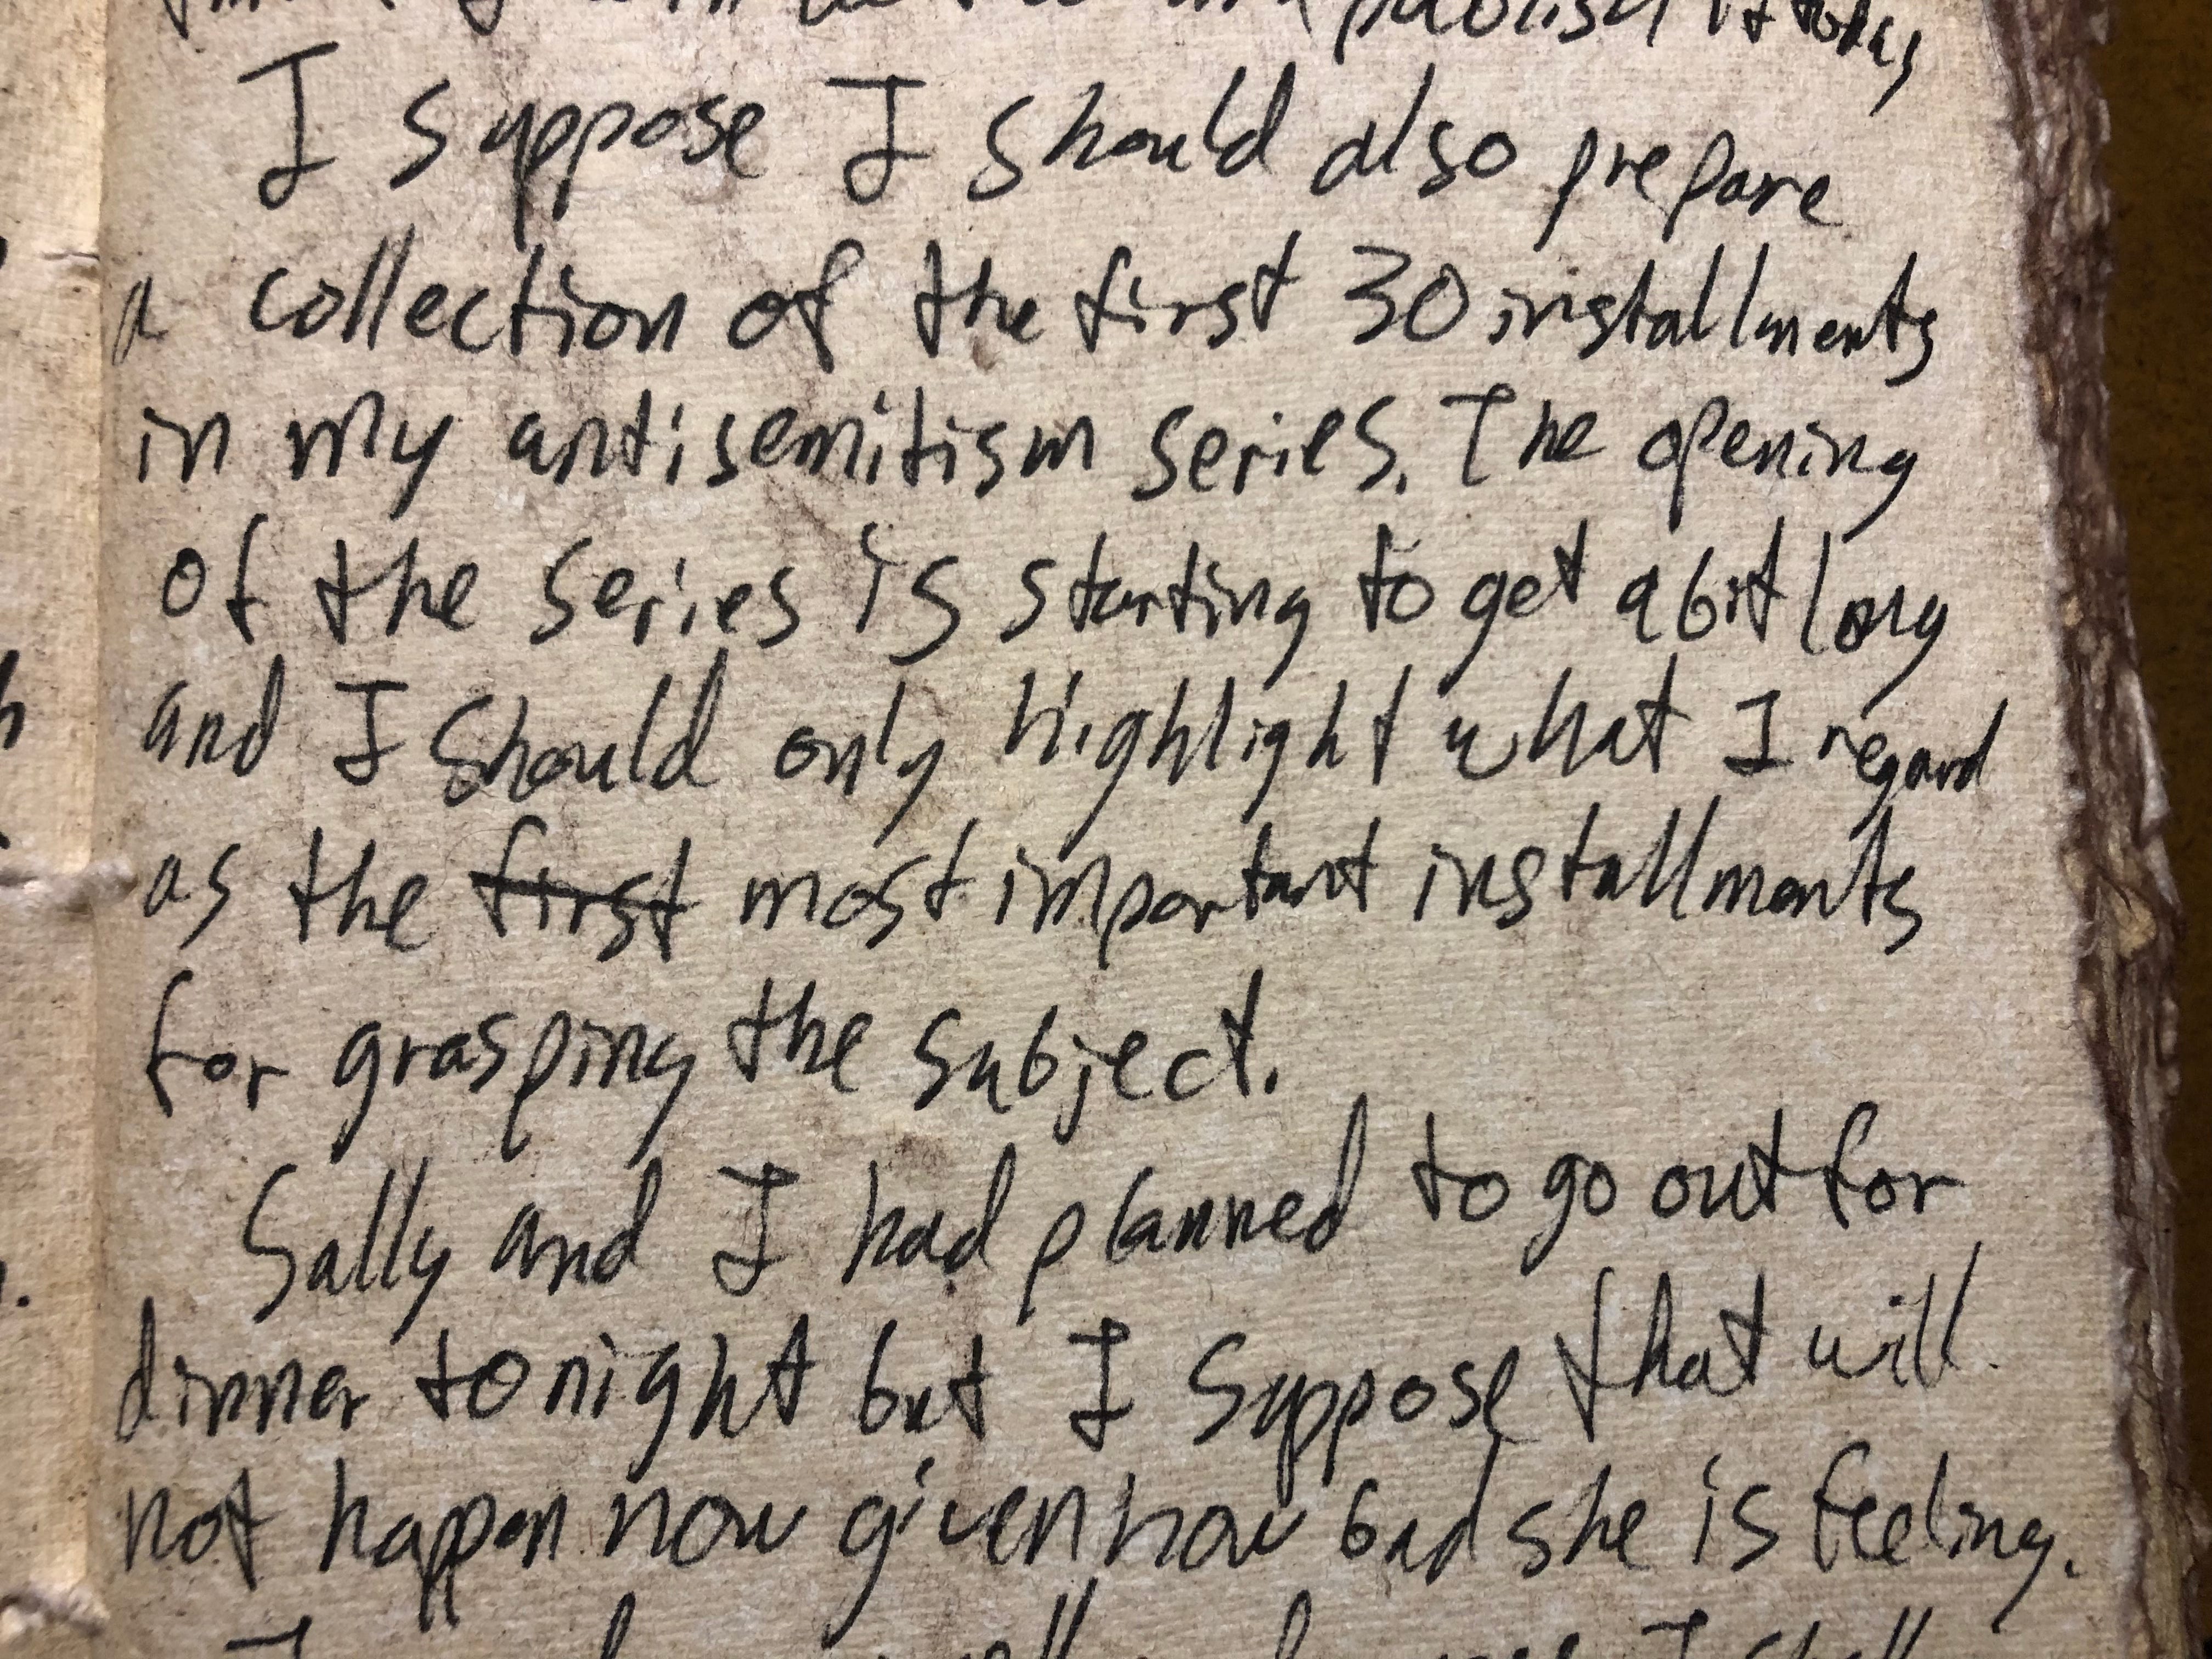 publish it today
I suppose I should also prepare
a collection of the first 30 installments
in my antisemitism series. The opening
of the series is starting to get a bit long
and I should only highlight what I regard
as the first most important installments
for grasping the subject.
Sally and I had planned to go out for
dinner tonight but I suppose that will
not happen now given how bad she is feeling.
I shall